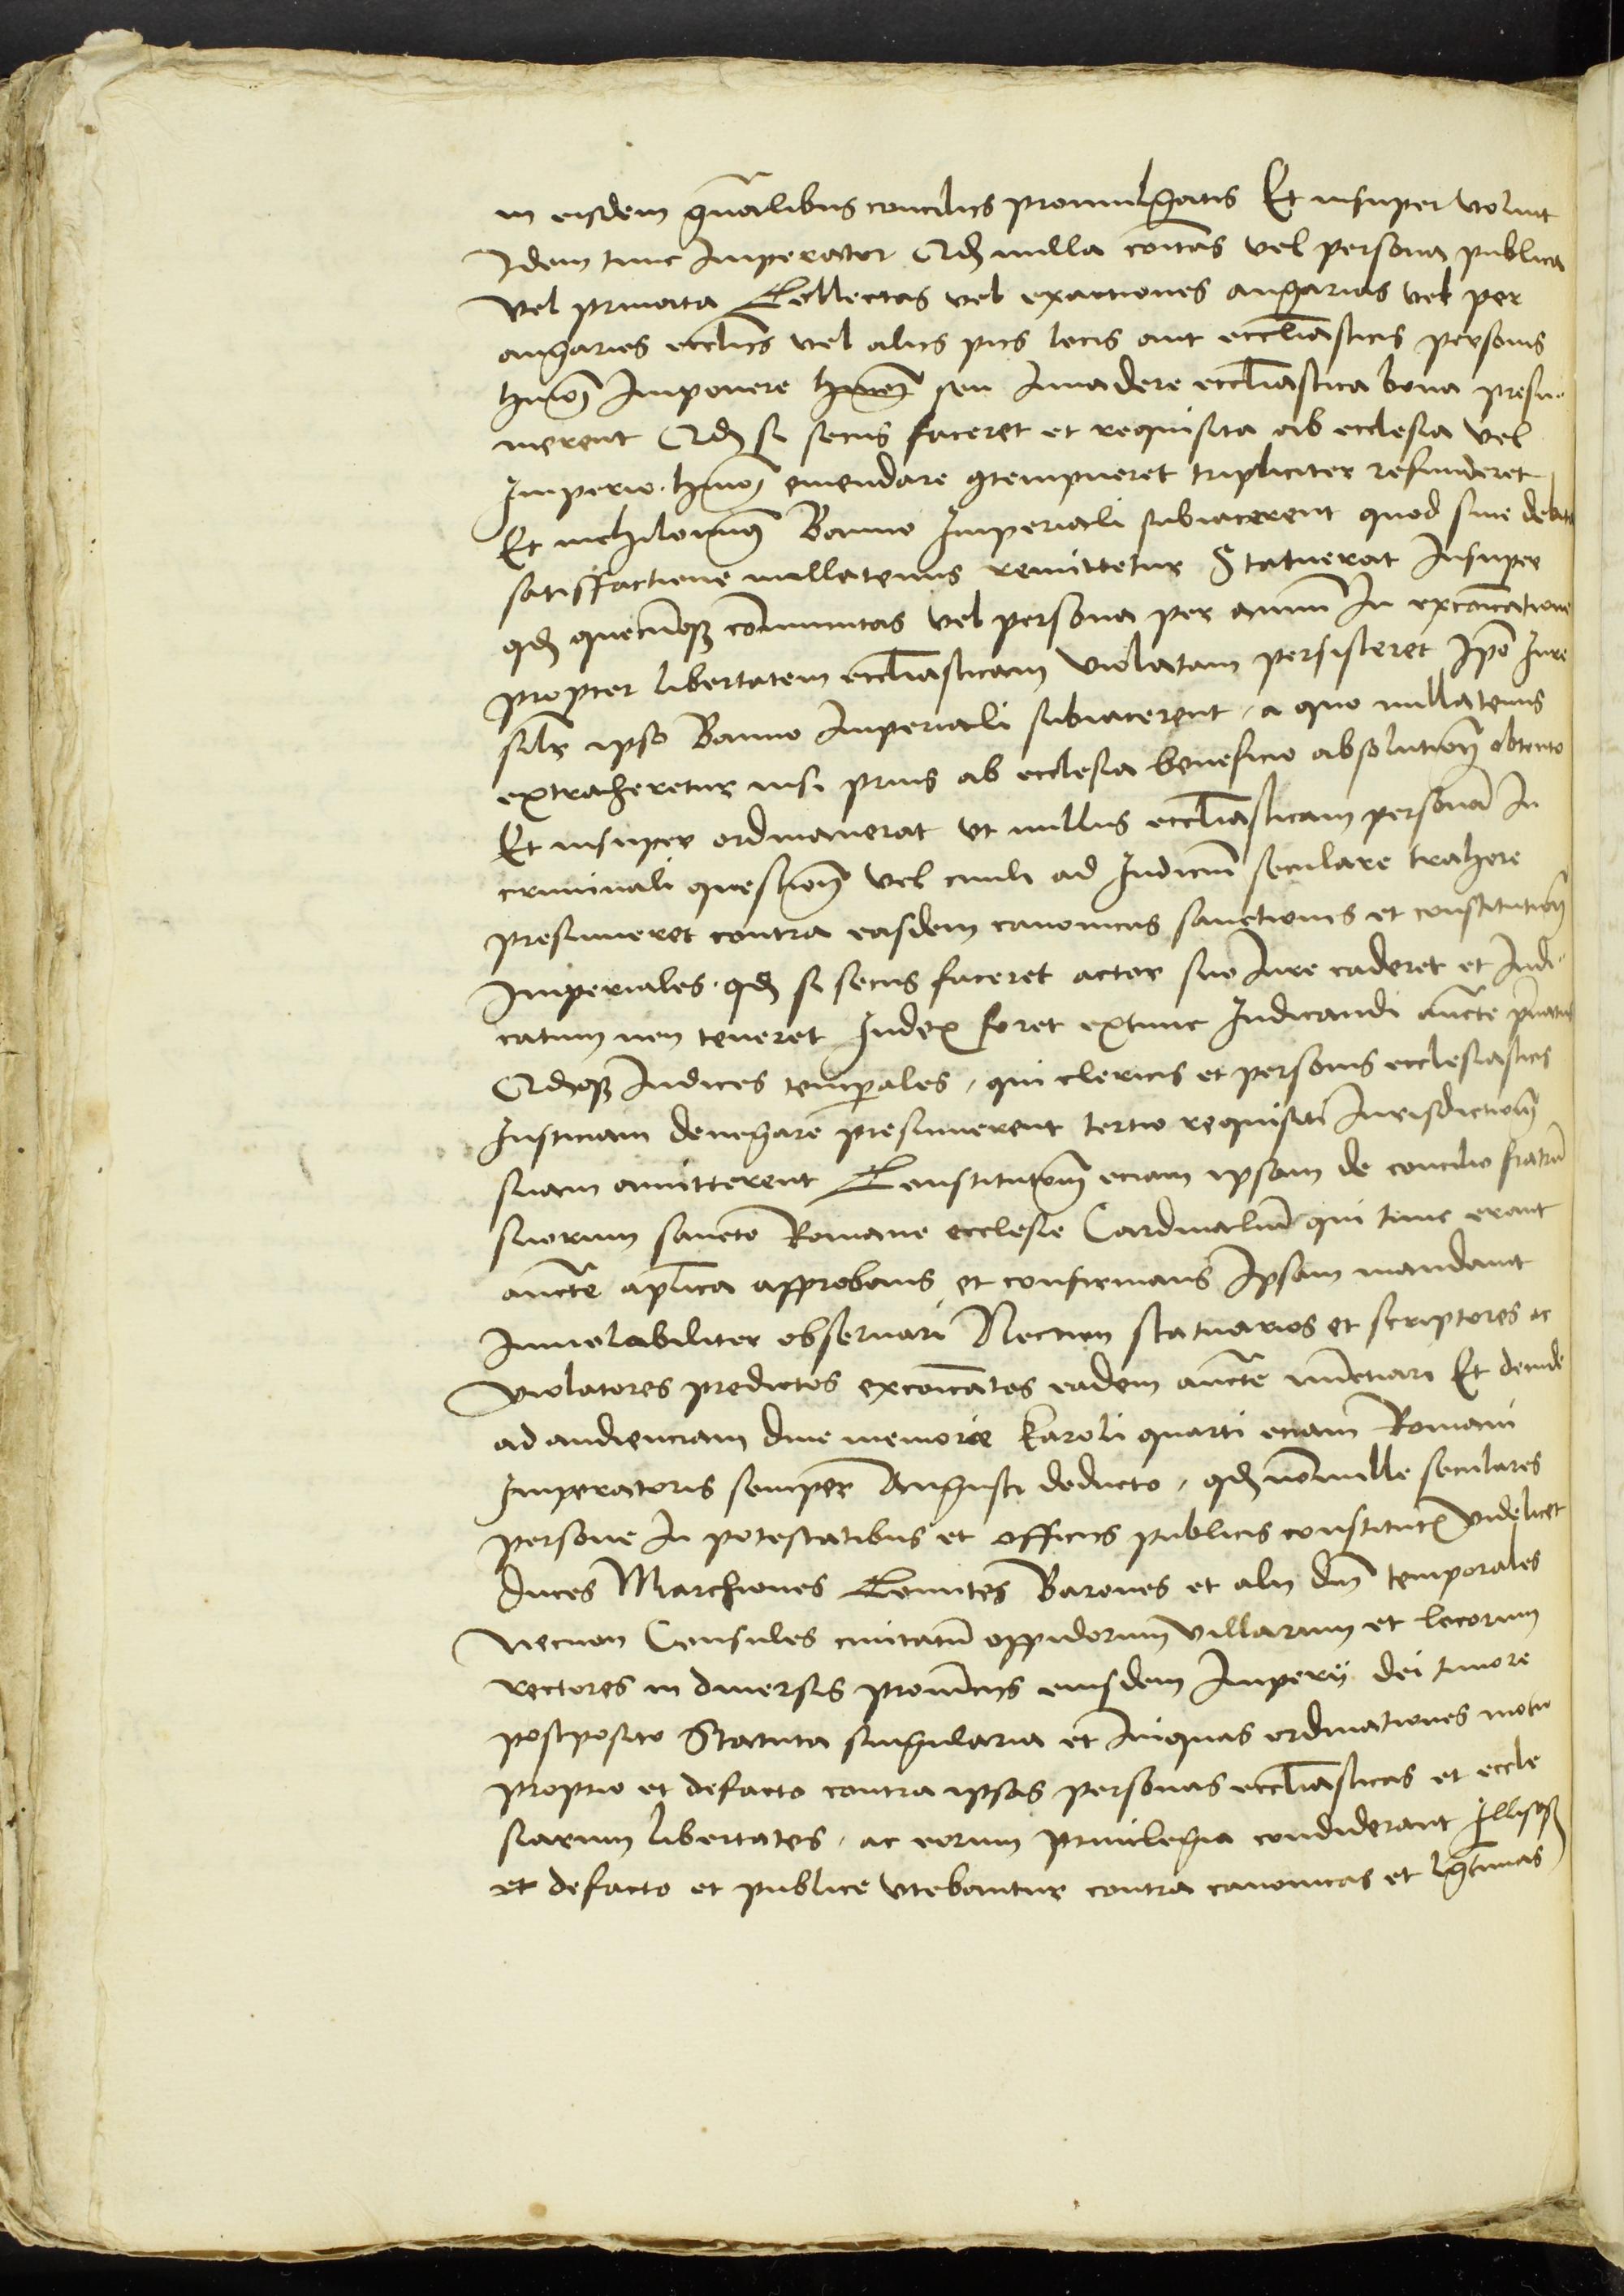 in eisdem gn̄alibus concilijs promulgatis Et insuper voluit
Idem tunc Imperator Qd nulla coītas vel persona publica
vel priuata Collectas vel exactiones angarias vel per
angarias ecclijs vel alijs pijs locis aut eccl̄iasticis personis
hmōi Imponere hmōi seu Inuadere eccl̄iastica bona presu-
merent Qd si secus faceret et requisita ab ecclesia vel
Imperio hmōi emendare ꝯtempneret tripliciter refunderet
Et nichilominus Banno Imperiali subiacerent quod sine debita
satisfactione nullatenus remittetur Statuerat Insuper
qd quecūqꝫ communitas vel persona per annū In excoīcatione
propter libertatem eccl̄iasticam violatam persisteret Ipō Iure
silr ipso Banno Imperiali subiacerent, a quo nullatenus
extraheretur nisi prius ab ecclesia beneficio absolutiōis obtento
Et insuper ordinauerat vt nullus eccl̄iasticam personā In
criminali questiōe vel ciuili ad Iudiciū seculare trahere
presumeret contra easdem canonicas sanctiones et constitutiōes
Imperiales. qd si secus faceret actor suo Iure caderet et Iudi-
catum non teneret Iudex foret extunc Iudicandi auctē priuatus
Qdqꝫ Iudices temporales, qui clericis et personis ecclesiasticis
Iusticiam denegare presumerent tertio requisiti Iurisdictiōem
suam amitterent Constitutōem eciam ipsam de concilio fratrū
suorum sancte Romane ecclesie Cardinaliū qui tunc erant
auctē ap̄lica approbans et confirmans Ipsam mandauit
Inuiolabiliter obseruari Necnon statuarios et scriptores ac
violatores predictos excoīcatos eadem auctē nūctiari Et deinde
ad audienciam diue memorie Karoli quarti eciam Romani
Imperatoris semper Augusti deducto, qd nōnulle seculares
persone In potestatibus et officijs publicis constitute videlicet
Duces Marchiones Comites Barones et alij dn̄i temporales
Necnon Consules ciuitatū oppidorum villarum et locorum
rectores in diuersis prouīcijs eiusdem Imperij dei timore
postposito Statuta singularia et Iniquas ordinationes motu
proprio et defacto contra ipsas personas eccl̄iasticas et eccle
siarum libertates, ac eorum priuilegia condiderant Illisqꝫ
et defacto et publice vtebantur contra canonicas et lḡtimas